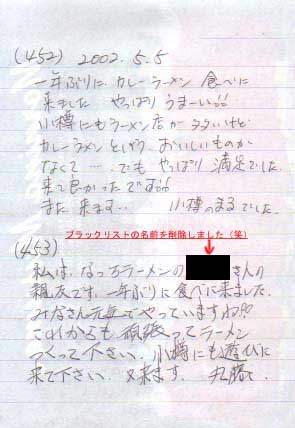 (452) 2002.5.5
一年ぶりに カレーラーメン 食べに
来ました やっぱり うまーい!!
小樽にもラーメン店が 多いけど
カレーラメンとゆう おいしいものが
なくて…‥でも やっぱり 満足でした.
来て良かったです!!
また 来ます… 小樽のまるでした.
(453) ブラックリストの名前を削除しました(笑)
私は、なっちラーメンの さんの
親友です. 一年ぶりに食べに来ました.
みなさん元気でやっていますね
これからも 頑張ってラーメン
つくって下さい. 小樽にも遊びに
来て下さい. 又来ます.